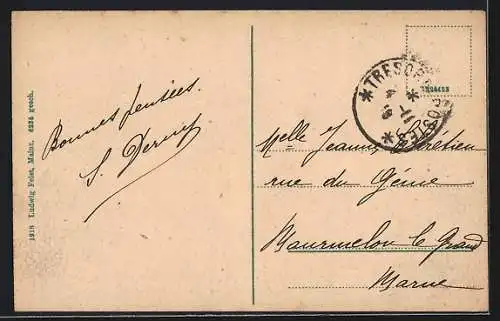 1918 Ludwig Feist, Mainz. gesch.
Bonnes pensées.
S.
* TRESOR ET POSTES *
Melle Jeanne Chrétien
rue du Génie
Bourmelon le Grand
Marne